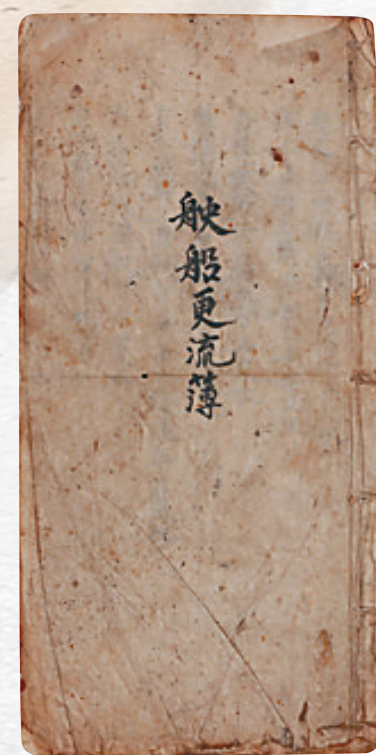 䑋船更流簿